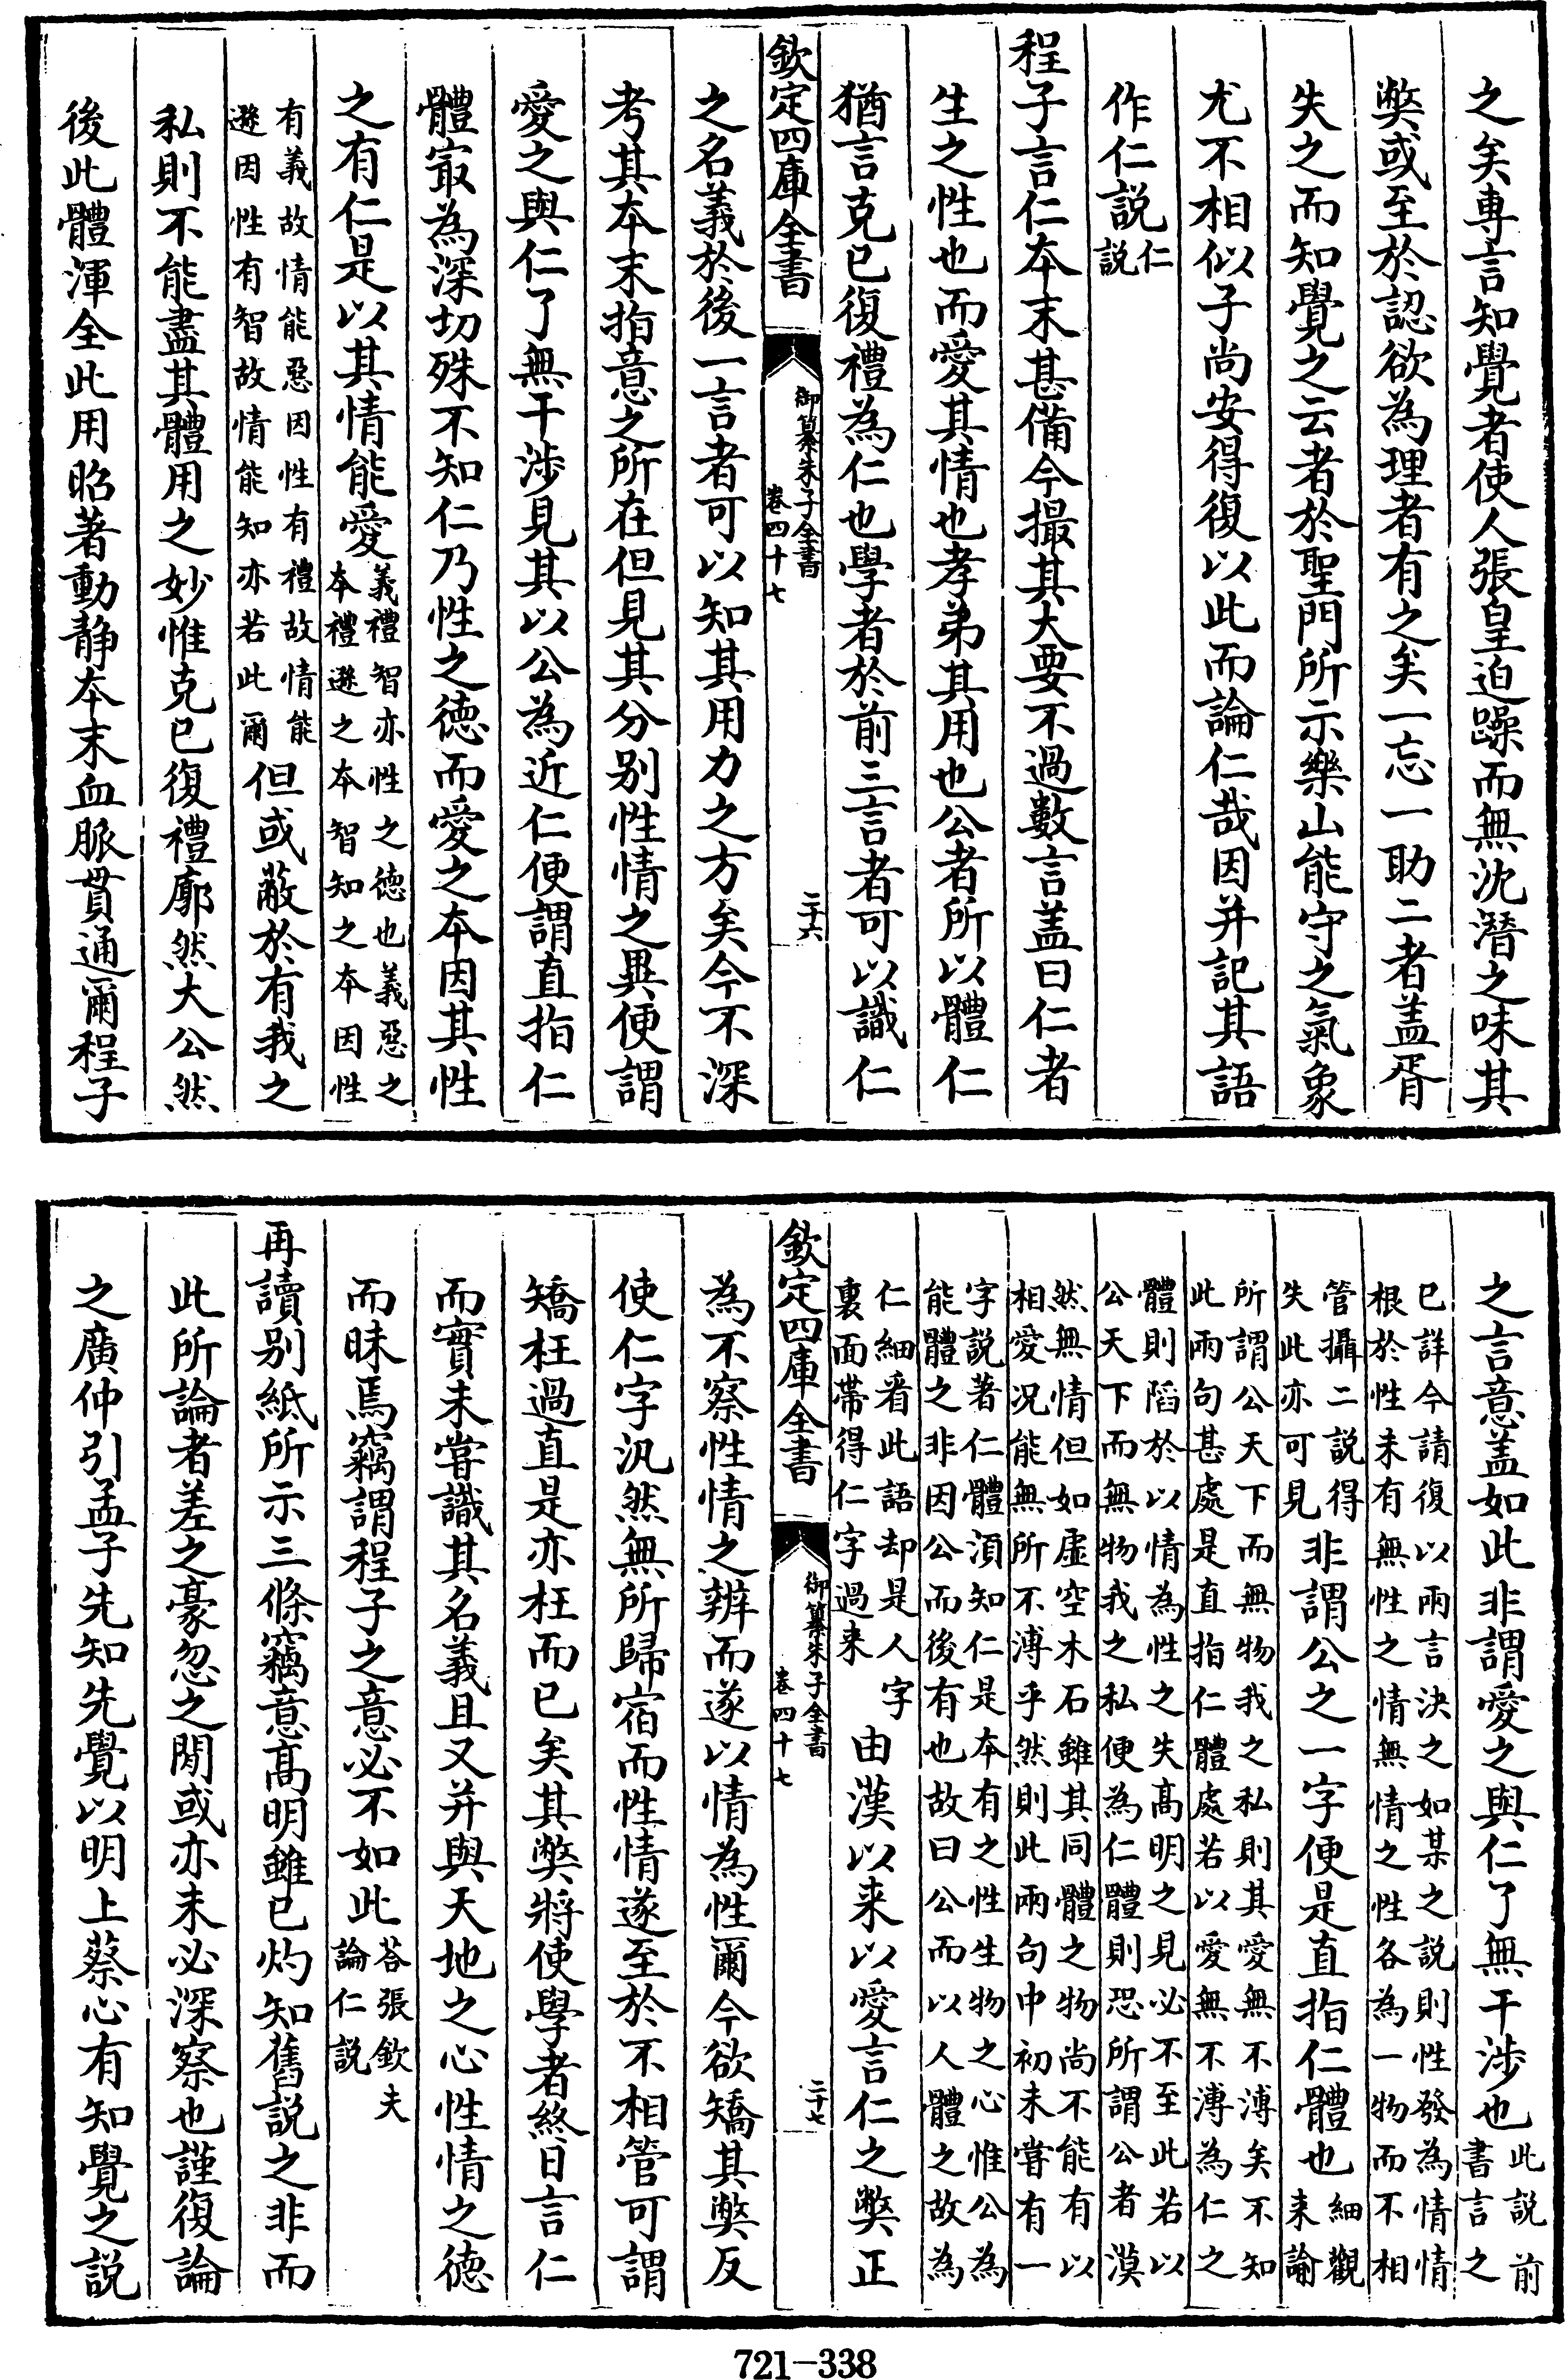 之矣專言知覺者使人張皇迫躁而無沈潛之味其
弊或至於認欲為理者有之矣一忘一助二者盖胥
失之而知覺之云者於聖門所示樂山能守之氣象
尤不相似子尚安得復以此而論仁哉因并記其語
作仁説仁説
程子言仁本末甚備今撮其大要不過數言盖曰仁者
生之性也而愛其情也孝弟其用也公者所以體仁
猶言克已復禮為仁也學者於前三言者可以識仁
欽定四庫全書 御纂朱子全書卷四十七 二十六
之名義於後一言者可以知其用力之方矣今不深
考其本末指意之所在但見其分别性情之異便謂
愛之與仁了無干涉見其以公為近仁便謂直指仁
體㝡為深切殊不知仁乃性之德而愛之本因其性
之有仁是以其情能愛義禮智亦性之德也義惡之本禮遜之本智知之本因性
有義故情能惡因性有禮故情能遜因性有智故情能知亦若此爾但或蔽於有我之
私則不能盡其體用之妙惟克已復禮廓然大公然
後此體渾全此用昭著動静本末血脈貫通爾程子
之言意盖如此非謂愛之與仁了無干涉也此説前書言之
已詳今請復以兩言決之如某之説則性發為情情根於性未有無性之情無情之性各為一物而不相
管攝二説得失此亦可見非謂公之一字便是直指仁體也細觀来諭
所謂公天下而無物我之私則其愛無不溥矣不知此兩句甚處是直指仁體處若以愛無不溥為仁之
體則䧟於以情為性之失髙明之見必不至此若以公天下而無物我之私便為仁體則恐所謂公者漠
然無情但如虛空木石雖其同體之物尚不能有以相愛况能無所不溥乎然則此兩句中初未嘗有一
字説著仁體湏知仁是本有之性生物之心惟公為能體之非因公而後有也故曰公而以人體之故為
仁細看此語却是人字裏面帶得仁字過来由漢以来以愛言仁之弊正
欽定四庫全書 御纂朱子全書卷四十七 二十七
為不察性情之辨而遂以情為性爾今欲矯其弊反
使仁字汎然無所歸宿而性情遂至於不相管可謂
矯枉過直是亦枉而已矣其弊將使學者終日言仁
而實未嘗識其名義且又并與天地之心性情之德
而昧焉竊謂程子之意必不如此荅張欽夫論仁説
再讀别紙所示三條竊意髙明雖已灼知舊説之非而
此所論者差之豪忽之閒或亦未必深察也謹復論
之廣仲引孟子先知先覺以明上蔡心有知覺之説
721-338